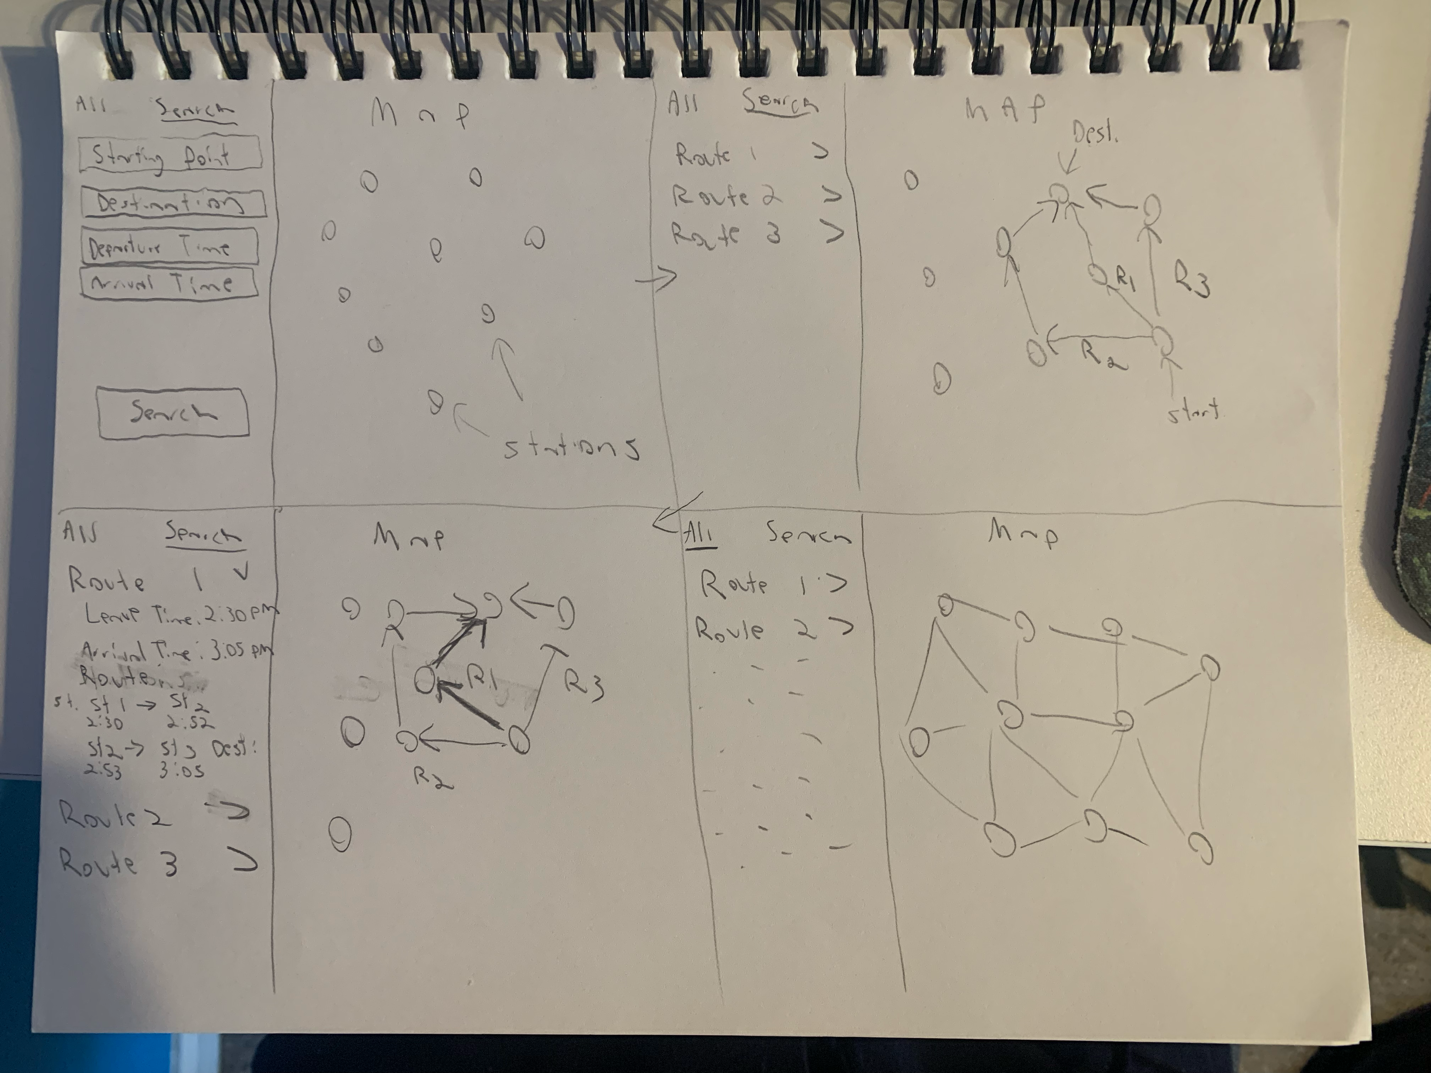 All Search
Starting Point
Destination
Departure Time
Arrival Time
Search
Map
Stations
All Search
Route 1 >
Route 2 >
Route 3 >
MAP
Dest.
R1
R3
R2
Start
All Search
Route 1 v
Leave Time: 2:30 pm
Arrival Time: 3:05 pm
Route
st. St 1 → St 2
2:30 2:52
St2 → St3 Dest:
2:53 3:05
Route 2 >
Route 3 >
Map
R1
R3
R2
All Search
Route 1 >
Route 2 >
Map